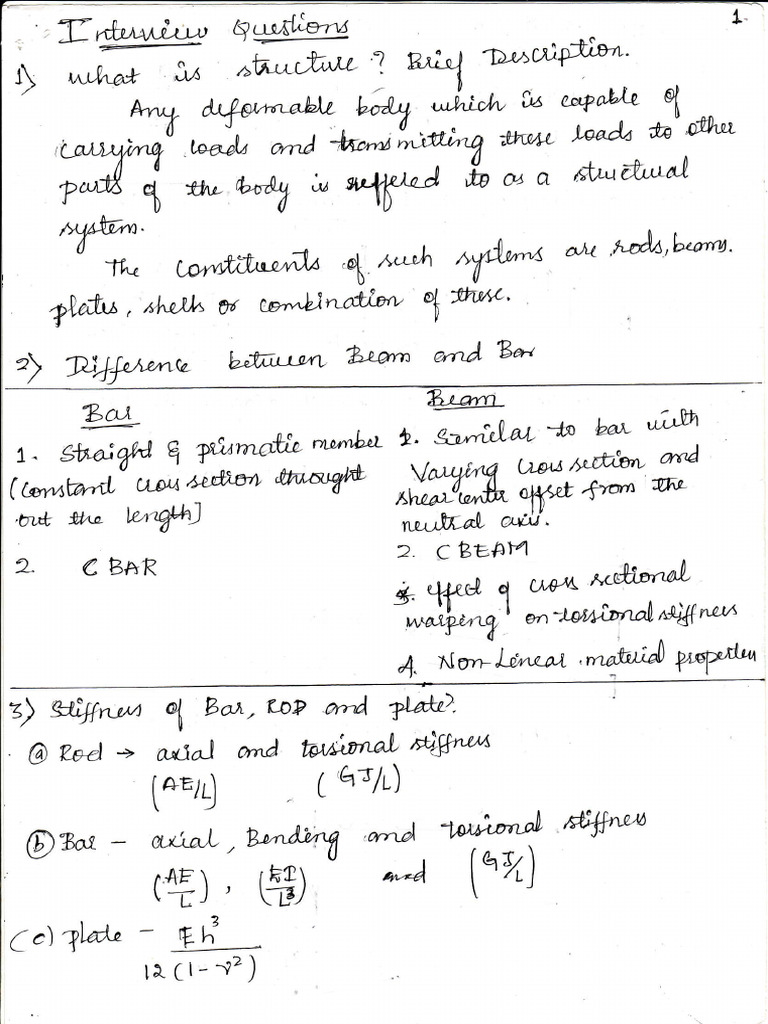 1
Interview Questions
1) What is structure? Brief Description.
Any deformable body which is capable of
carrying loads and transmitting these loads to other
parts of the body is reffered to as a structural
system.
The constituents of such systems are rods, beams.
plates, shells or combination of these.
2) Difference between Beam and Bar
Bar
1. Straight & prismatic member
(constant cross section throught
out the length]
2. C BAR
Beam
1. Similar to bar with
Varying cross section and
shear center offset from the
neutral axis.
2. C BEAM
3. effect of cross sectional
warping on torsional stiffness
4. Non-Linear material properties
3) Stiffness of Bar, ROD and plate?
(a) Rod → axial and torsional stiffness
(AE/L) (GJ/L)
(b) Bar - axial, Bending and torsional stiffness
(AE/L), (EI/L³) and (GJ/L)
(c) plate - Eh³
12(1-ν²)